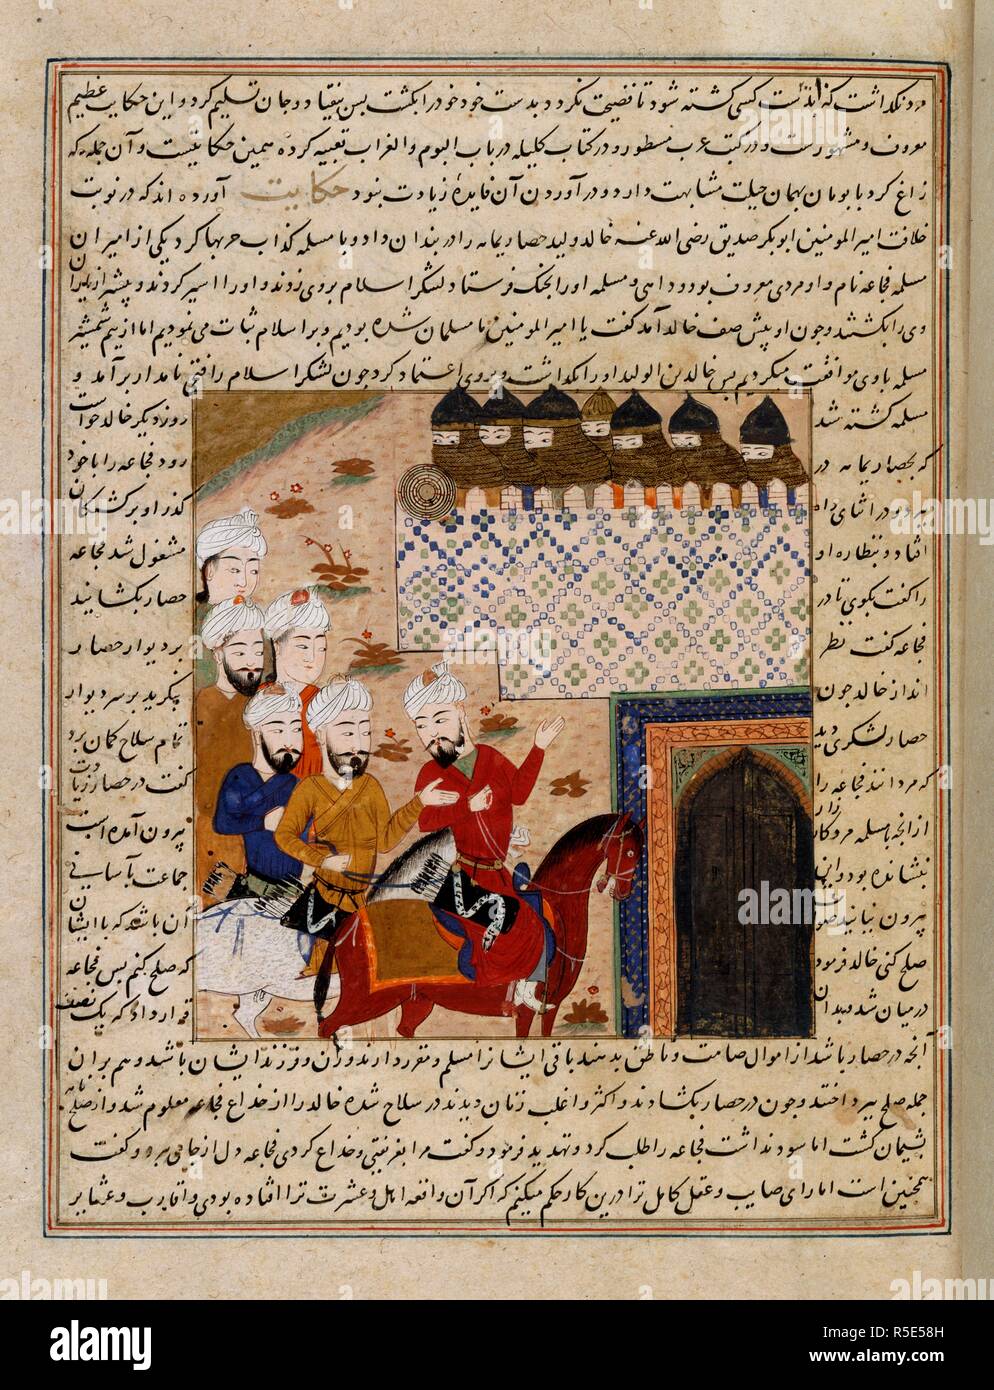 مرد نکذاشت که ابدست کسی کشته شود تا فضیحت نکردد و بدست خود خود را بکشت پس بیفتاد و جان تسلیم کرد و این حکایت عظیم
معروف و مشهورست و در کتب عرب مسطور و در کتاب کلیله در باب البوم و الغراب تعبیه کرده همین حکایتیست و آن جمله که
زاغ کرد با بومان بهمان حیلت مشابهت دارد و در آوردن آن فایدهٔ زیادت نبود حکایت آورده اند که در نوبت
خلافت امیر المومنین ابوبکر صدیق رضی الله عنه خالد ولید حصار یمامه را در بندان داد و با مسلمه کذاب حربها کرد یکی از امیران
مسلمه فجاعه نام و او مردی معروف بود و داهی و مسلمه او را بجنک فرستاد لشکر اسلام بروی زدند و او را اسیر کردند و بیشتر از یاران
وی را بکشتند و چون او پیش صف خالد آمد کفت یا امیر المومنین ما مسلمان شده بودیم و بر اسلام ثبات می نمودیم اما از بیم شمشیر
مسلمه با وی موافقت میکردیم پس خالد بن الولید او را نکذاشت و بروی اعتماد کرد چون لشکر اسلام را فتحی نامدار بر آمد و
مسلمه کشته شد روز دیکر خالد خواست
که بحصار یمامه در رود فجاعه را با خود
ببرد و در اثنای راه کذر او بر کشتکان
افتاد و بنظاره او مشغول شد فجاعه
را کفت بکوی تا در حصار بکشایند
فجاعه کفت نظر بر دیوار حصار
انداز خالد چون بنکرید بر سر دیوار
حصار لشکری دید تمام سلاح کمان برد
که مردانند فجاعه را کفت در حصار زیادت
از انچه با مسلمه مرد کارزار بیرون آمده است
بنشانده بود و اینها جماعت بآسانی
بیرون نیایند صواب آن باشد که با ایشان
صلح کنی خالد فرمود که صلح کنم پس فجاعه
درمیان شد و بدان قرار داد که یک نصف
آنچه در حصار باشد از اموال صامت و ناطق بدهند باقی ایشانرا مسلم و مقرر دارند و زن و فرزند ایشان باشد و هم بران
جمله صلح بپرداختند و چون در حصار بکشادند و اکثر و اغلب زنان دیدند در سلاح شده خالد را از خداع فجاعه معلوم شد و از صلح نامه
پشیمان کشت اما سود نداشت فجاعه را طلب کرد و تهدید فرمود و کفت مرا بفریفتی و خداع کردی فجاعه دل از جای نبرد و کفت
همچنین است اما رای صایب و عقل کامل ترا درین کار حکم میکنم که اکر آن واقعه اهل و عشرت ترا افتاده بودی و اقارب و عشایر
alamy stock photo
R5E58H
www.alamy.com